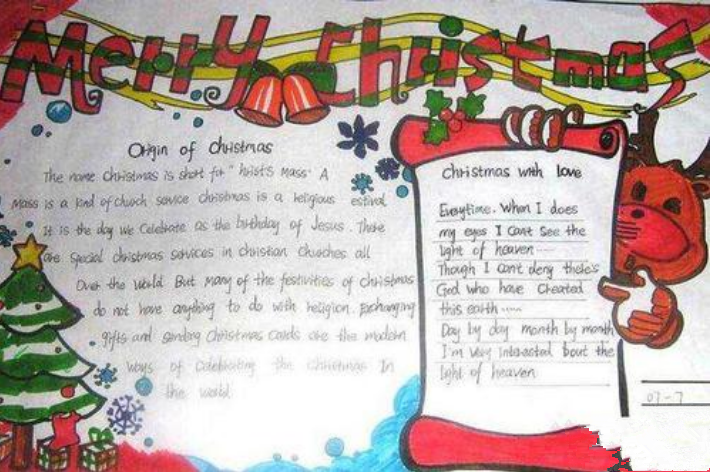 Merry Christmas
Origin of Christmas
The name Christmas is short for "hrist's Mass" A
Mass is a kind of church service christmas is a religious estival
It is the day we Celebrate as the birthday of Jesus. There
are special christmas services in christian Churches all
Over the World But many of the festivities of christmas
do not have anything to do with religion. Exchanging
gifts and sending Christmas Cards are the modern
Ways of Celebrating the Christmas In
the World
Christmas with love
Everytime. When I does
my eyes I cant See the
light of heaven ......
Though I can't deny there's
God who have Created
this earth ......
Day by day month by month
I'm Very Interacted 'bout the
light of heaven
07-7